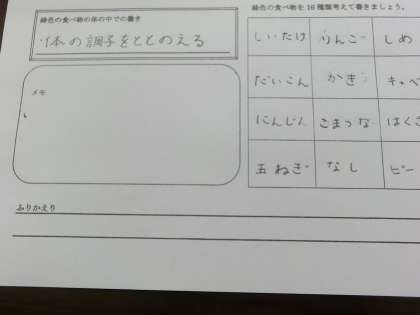 緑色の食べ物の体の中での働き
体の調子をととのえる
メモ
緑色の食べ物を16種類考えて書きましょう。
しいたけ りんご しめ
だいこん かき キャベ
にんじん こまつな はくさ
玉ねぎ なし ピー
ふりかえり